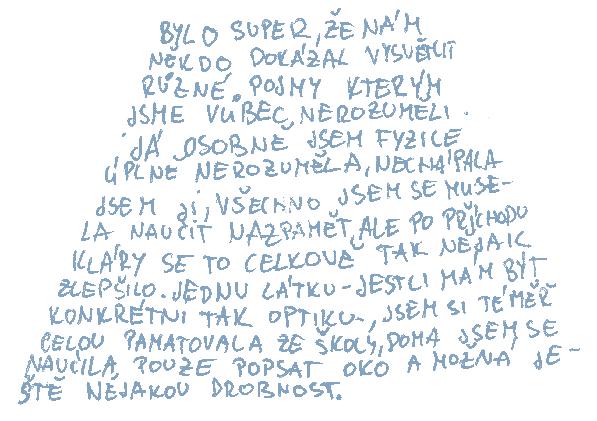 BYLO SUPER, ŽE NÁM
NĚKDO DOKÁZAL VYSVĚTLIT
RŮZNÉ POJMY KTERÝM
JSME VŮBEC NEROZUMĚLI.
JÁ OSOBNĚ JSEM FYZICE
ÚPLNĚ NEROZUMĚLA, NECHÁPALA
JSEM JÍ, VŠECHNO JSEM SE MUSE-
LA NAUČIT NAZPAMĚŤ, ALE PO PŘÍCHODU
KLÁRY SE TO CELKOVĚ TAK NĚJAK
ZLEPŠILO. JEDNU LÁTKU - JESTLI MÁM BÝT
KONKRÉTNÍ TAK OPTIKU -, JSEM SI TÉMĚŘ
CELOU PAMATOVALA ZE ŠKOLY, DOMA JSEM SE
NAUČILA POUZE POPSAT OKO A MOŽNÁ JE-
ŠTĚ NĚJAKOU DROBNOST.